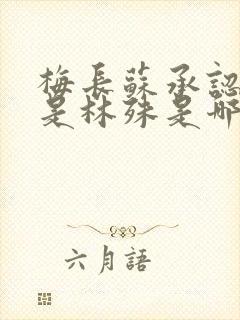 梅長蘇承認
是林殊是哪
六月語